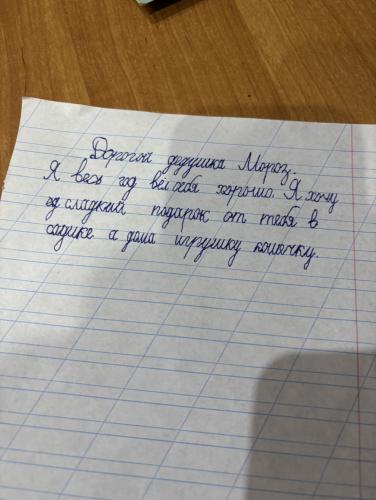 Дорогой дедушка Мороз.
Я весь год вёл себя хорошо. Я хочу
сладкий подарок от тебя в
садике а дома игрушку